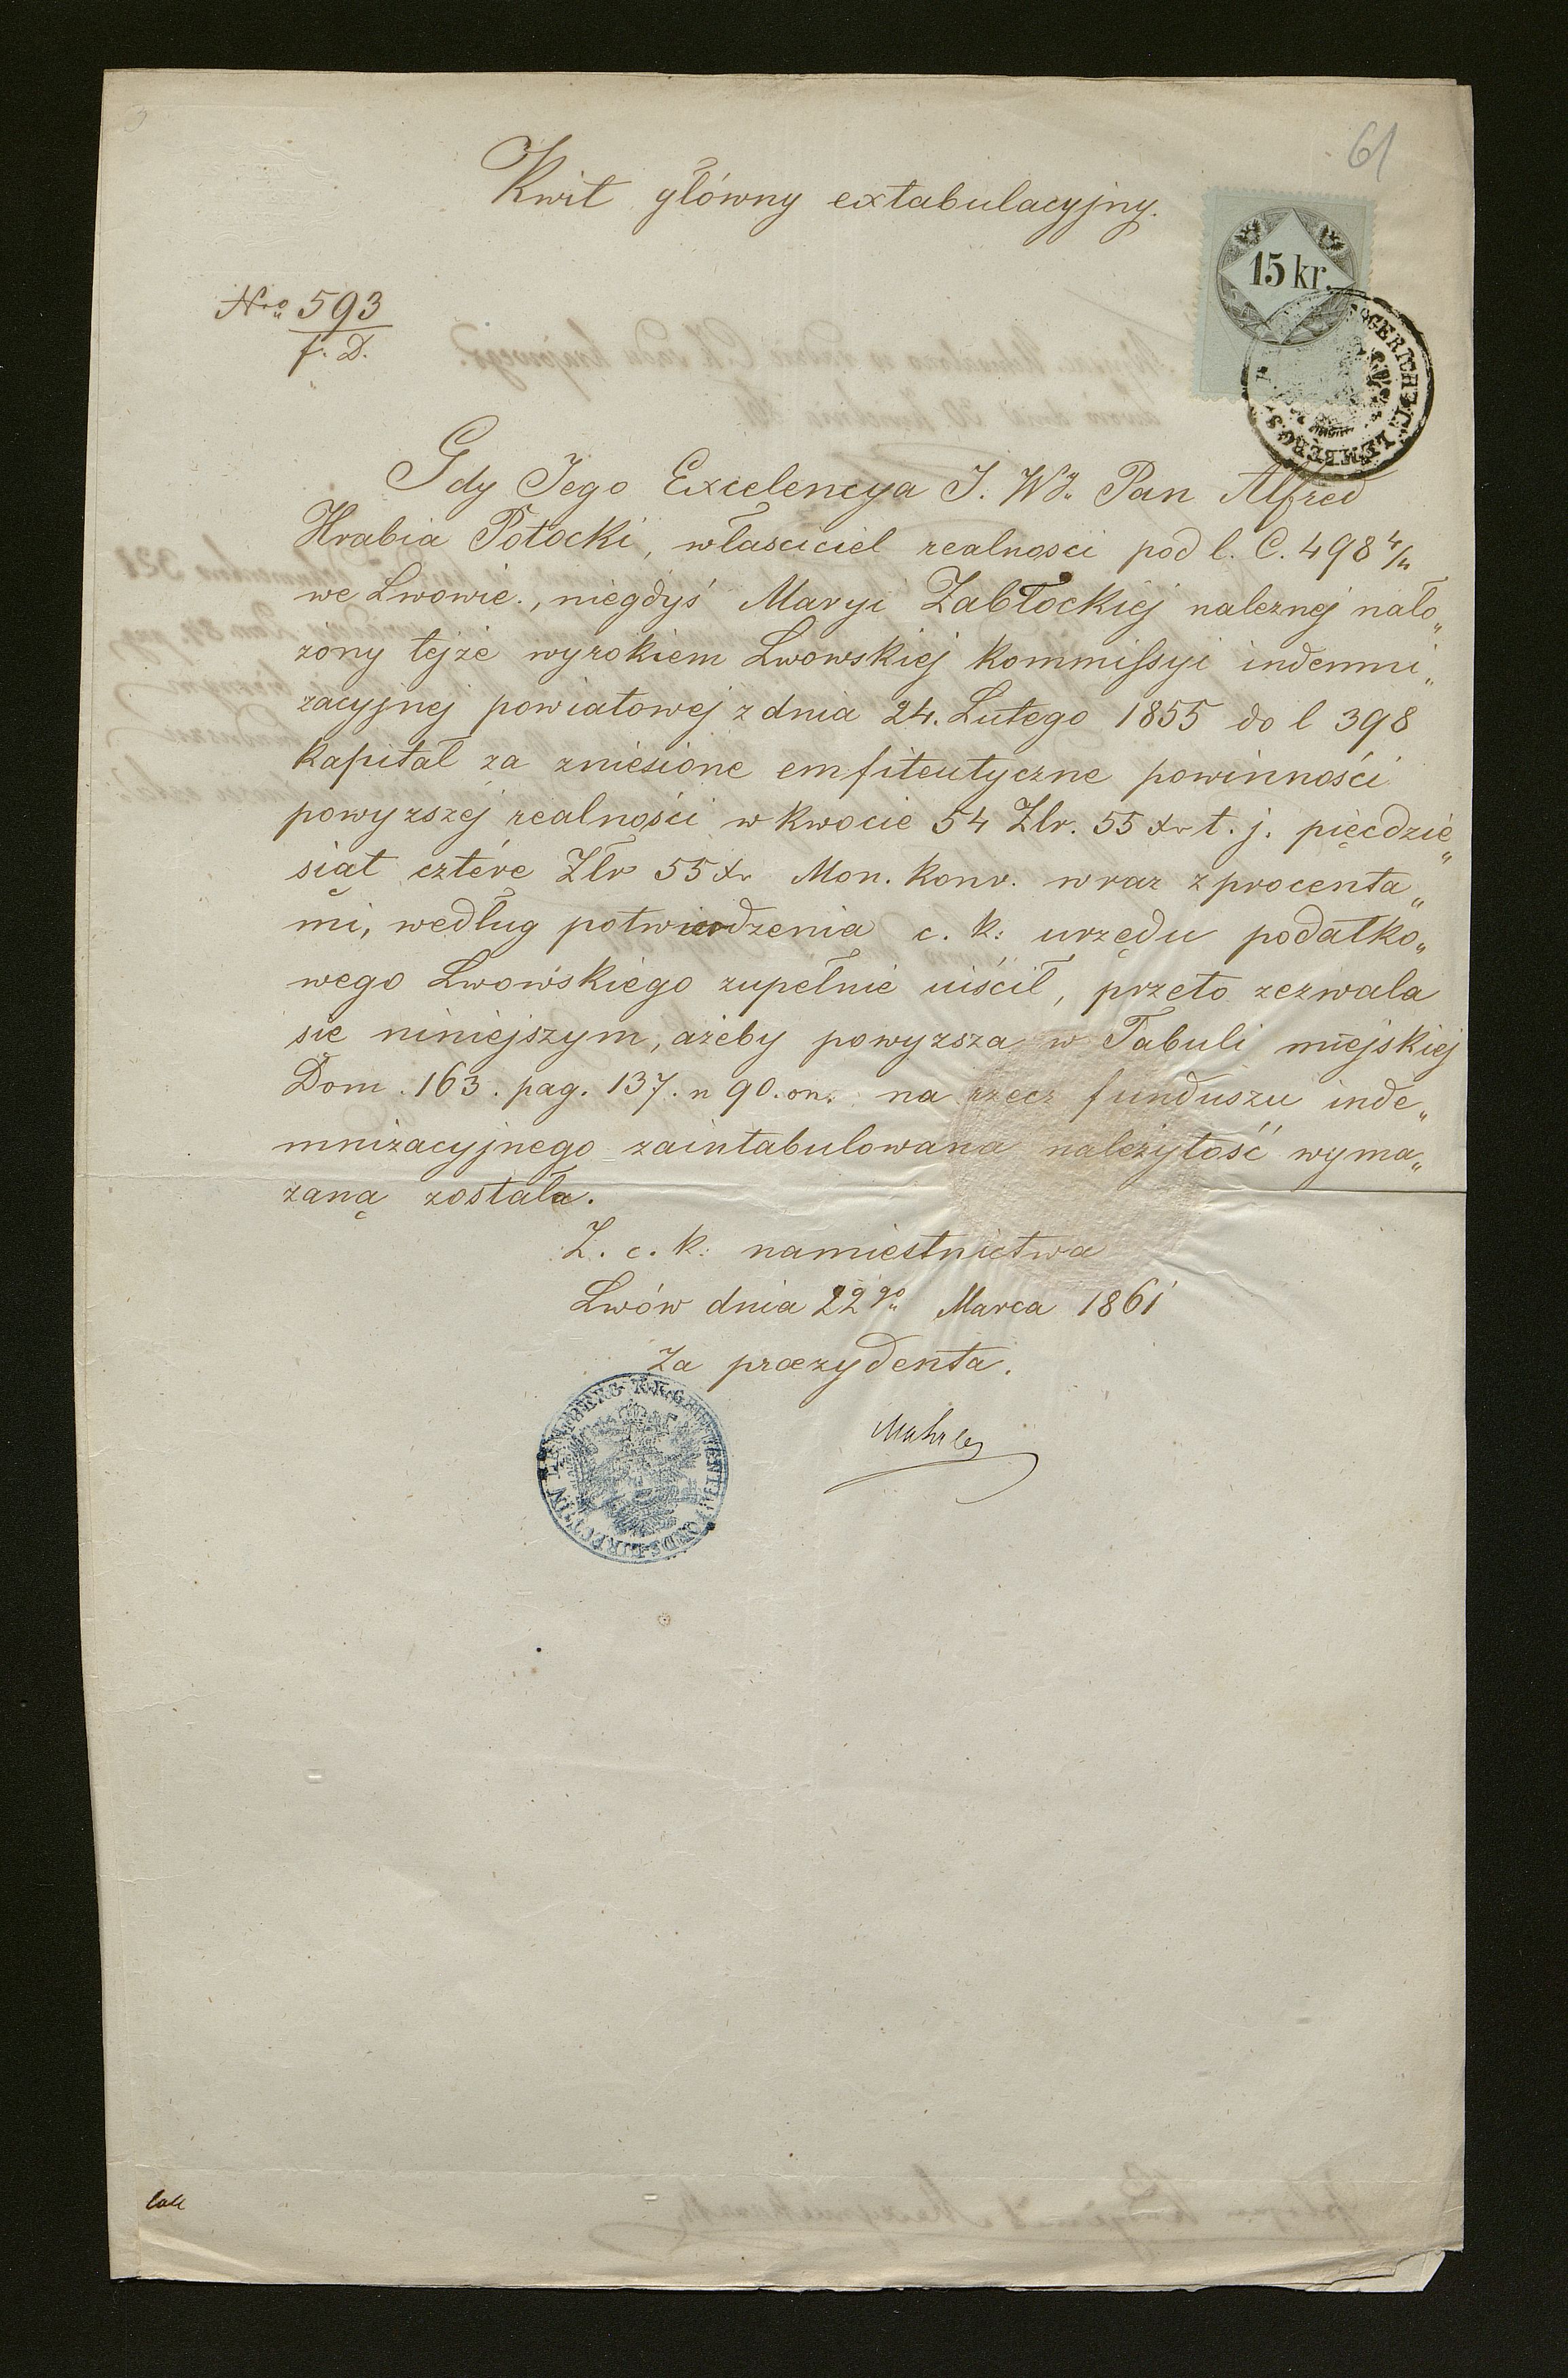 61
Kwit główny extabulacyjny.
15 kr.
Nro 593
f. D.
Gdy Jego Excelencya J. Wy. Pan Alfred
Hrabia Potocki, własciciel realnosci pod l. C. 498 4/4
we Lwowie., niegdyś Maryi Zabłockiej naleznej nało„
żony tejże wyrokiem Lwowskiej kommissyi indemni„
zacyjnej powiatowej z dnia 24. Lutego 1855 do l 398
kapitał za zniesione emfiteutyczne powinności
powyzszej realności w kwocie 54 Zlr. 55 xr t. j. pięcdzie„
siąt cztére Złr 55 xr Mon. konv. wraz z procenta„
mi, według potwierdzenia c. k: urzędu podatko„
wego Lwowskiego zupełnie uiścił, przeto zezwala
sie niniejszym, ażeby powyzsza w Tabuli miejskiej
Dom. 163. pag. 137. n 90. on. na rzecz funduszu inde„
mnizacyjnego zaintabulowana należytość wyma„
zaną została.
Z. c. k: namiestnictwa
Lwów dnia 22go Marca 1861
Za prezydenta.